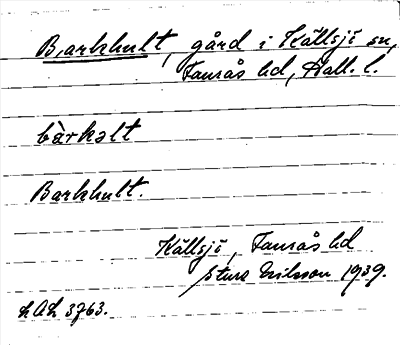 Barkhult, gård i Källsjö sn,
Faurås hd, Hall. l.
bàrkəlt
Barkhult.
Källsjö, Faurås hd
Sture Nilsson 1939.
LAL 3763.